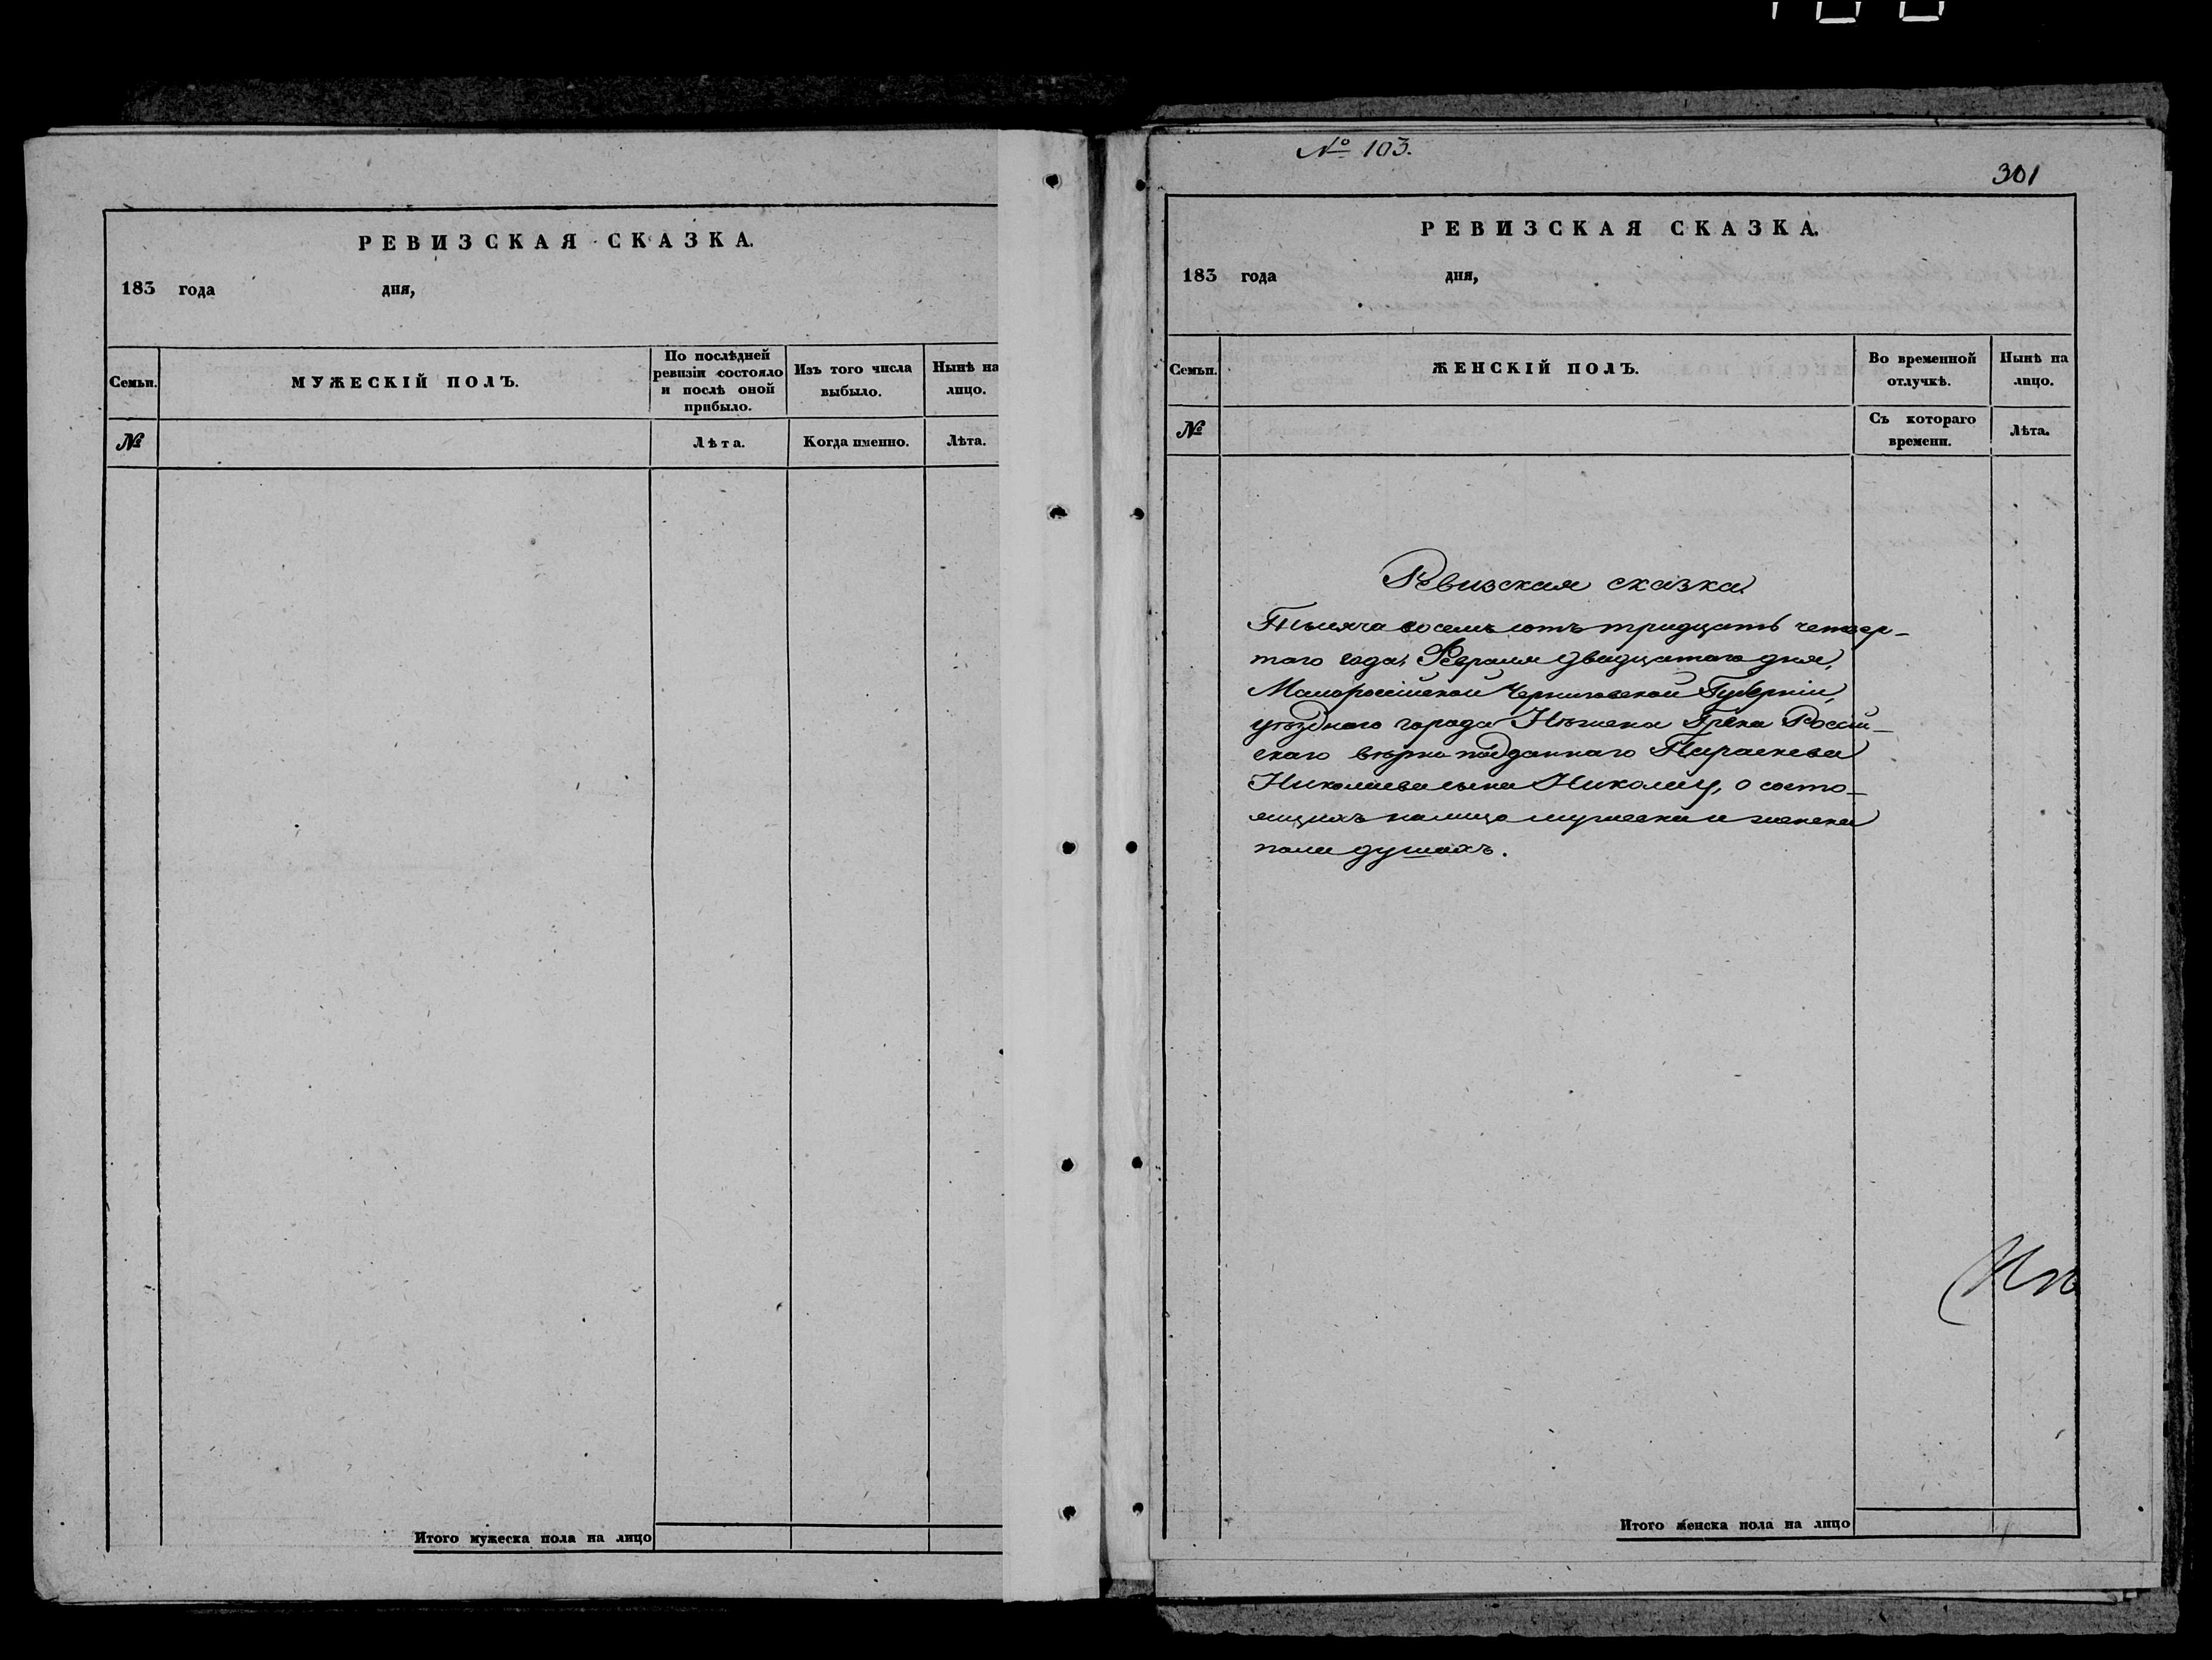 РЕВИЗСКАЯ СКАЗКА.
183 года дня,
Семьи.
МУЖЕСКІЙ ПОЛЪ.
По послѣдней
ревизіи состояло
и послѣ оной
прибыло.
Изъ того числа
выбыло.
Нынѣ на
лицо.
№
Лѣта.
Когда именно.
Лѣта.
Итого мужеска пола на лицо
№ 103.
301
РЕВИЗСКАЯ СКАЗКА.
183 года дня,
Семьи.
ЖЕНСКІЙ ПОЛЪ.
Во временной
отлучкѣ.
Нынѣ на
лицо.
№
Съ котораго
времени.
Лѣта.
Ревизская сказка.
Тысяча восемьсотъ тридцать четвер-
таго года, двадцатого дня,
Малороссійской Черниговской Губерніи,
уѣзднаго города Нѣжина Грека Россій-
скаго вѣрно подданнаго Параскева
Николаева сына Николау, о состо-
ящихъ налицо мужеска и женска
пола душахъ.
Итого женска пола на лицо